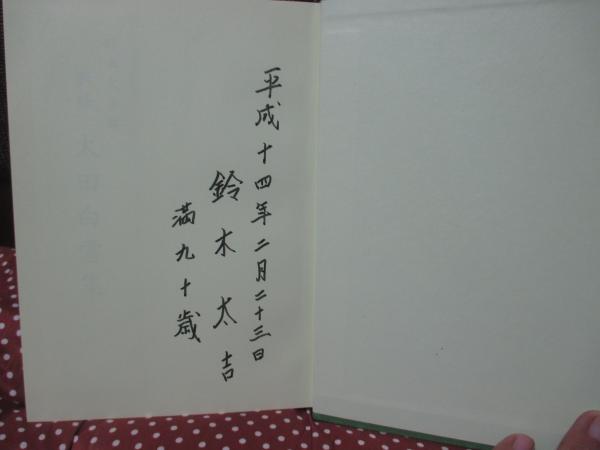 平成十四年二月二十三日
鈴木太吉
満九十歳